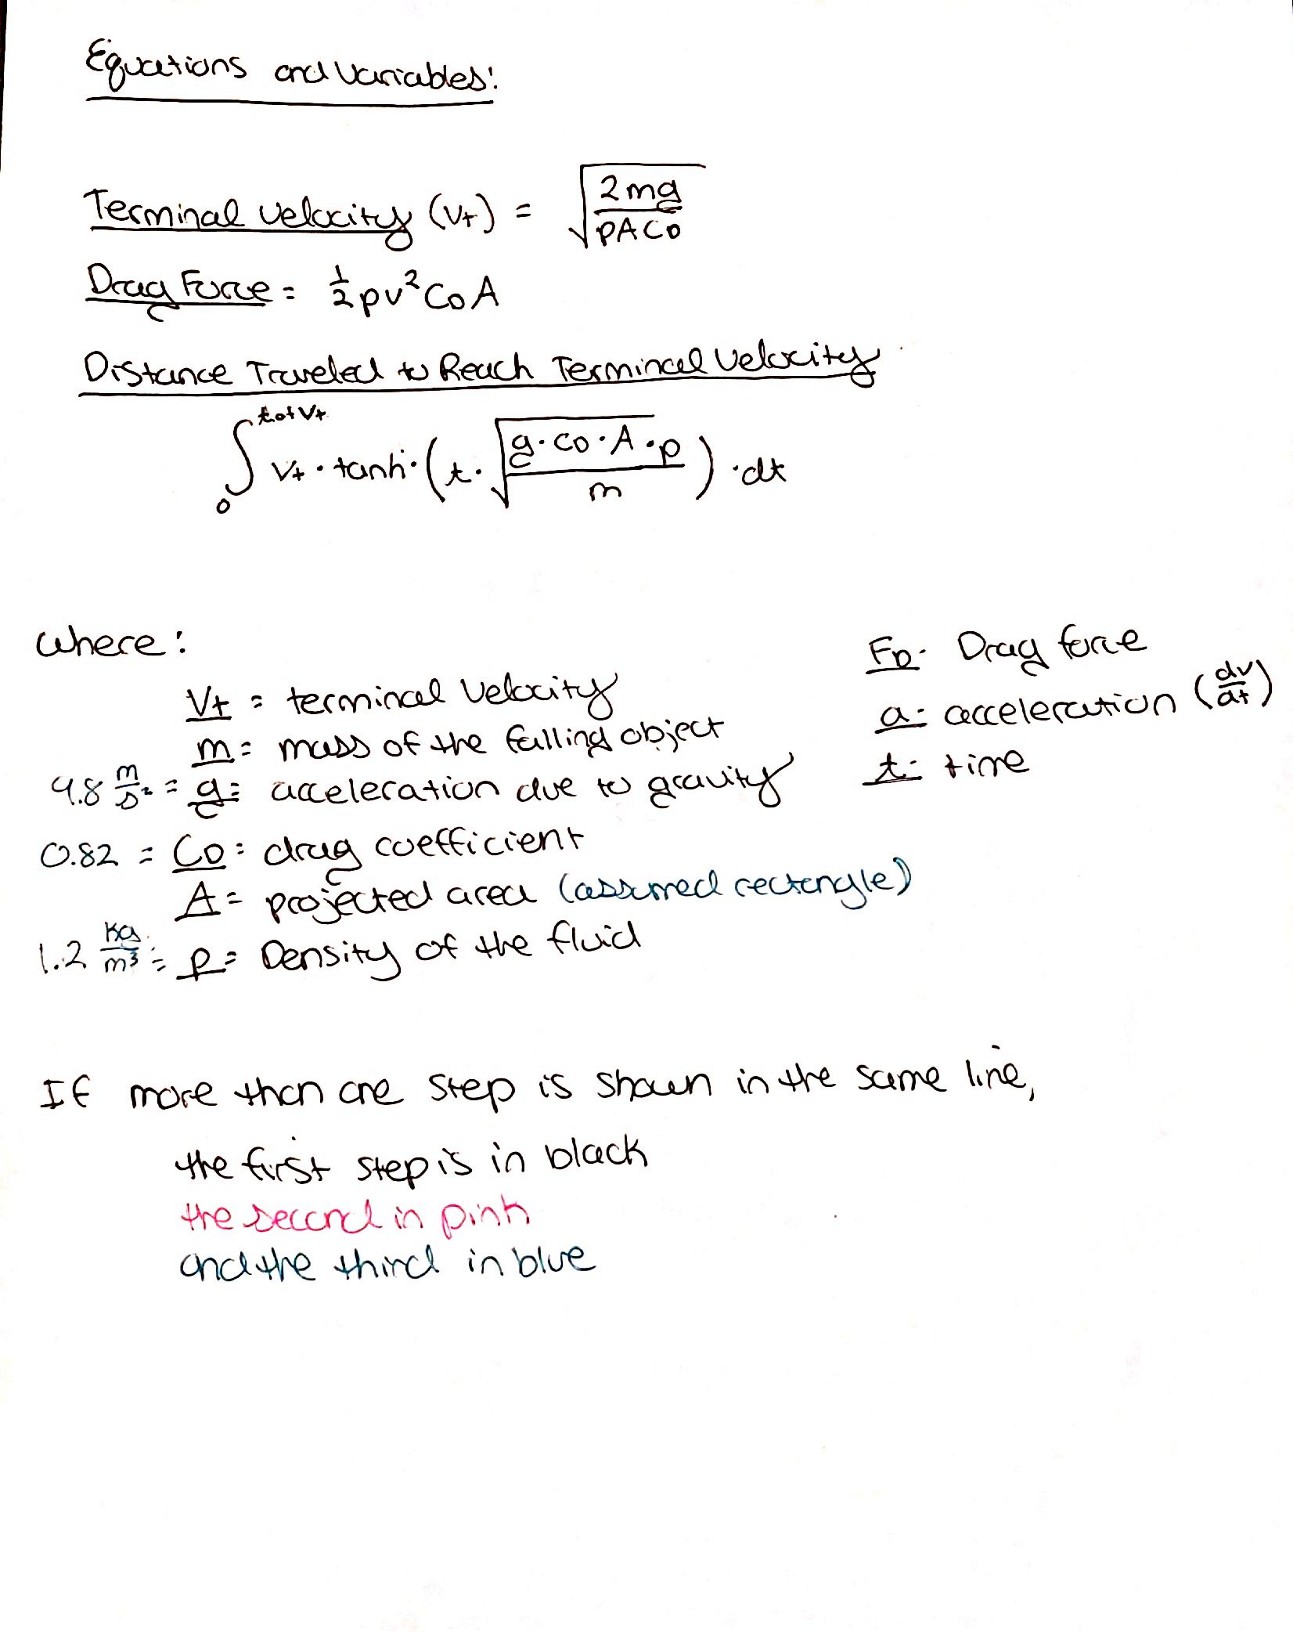 Equations and Variables:
Terminal Velocity (Vt) = √(2mg / ρACD)
Drag Force = ½ρv²CDA
Distance Traveled to Reach Terminal Velocity
∫₀^(t of Vt) Vt · tanh · (t · √(g · CD · A · ρ / m)) · dt
where:
Vt = terminal velocity
m = mass of the falling object
9.8 m/s² = g = acceleration due to gravity
0.82 = CD = drag coefficient
A = projected area (assumed rectangle)
1.2 kg/m³ = ρ = Density of the fluid
FD: Drag force
a: acceleration (dv/dt)
t: time
If more than one step is shown in the same line,
the first step is in black
the second in pink
and the third in blue